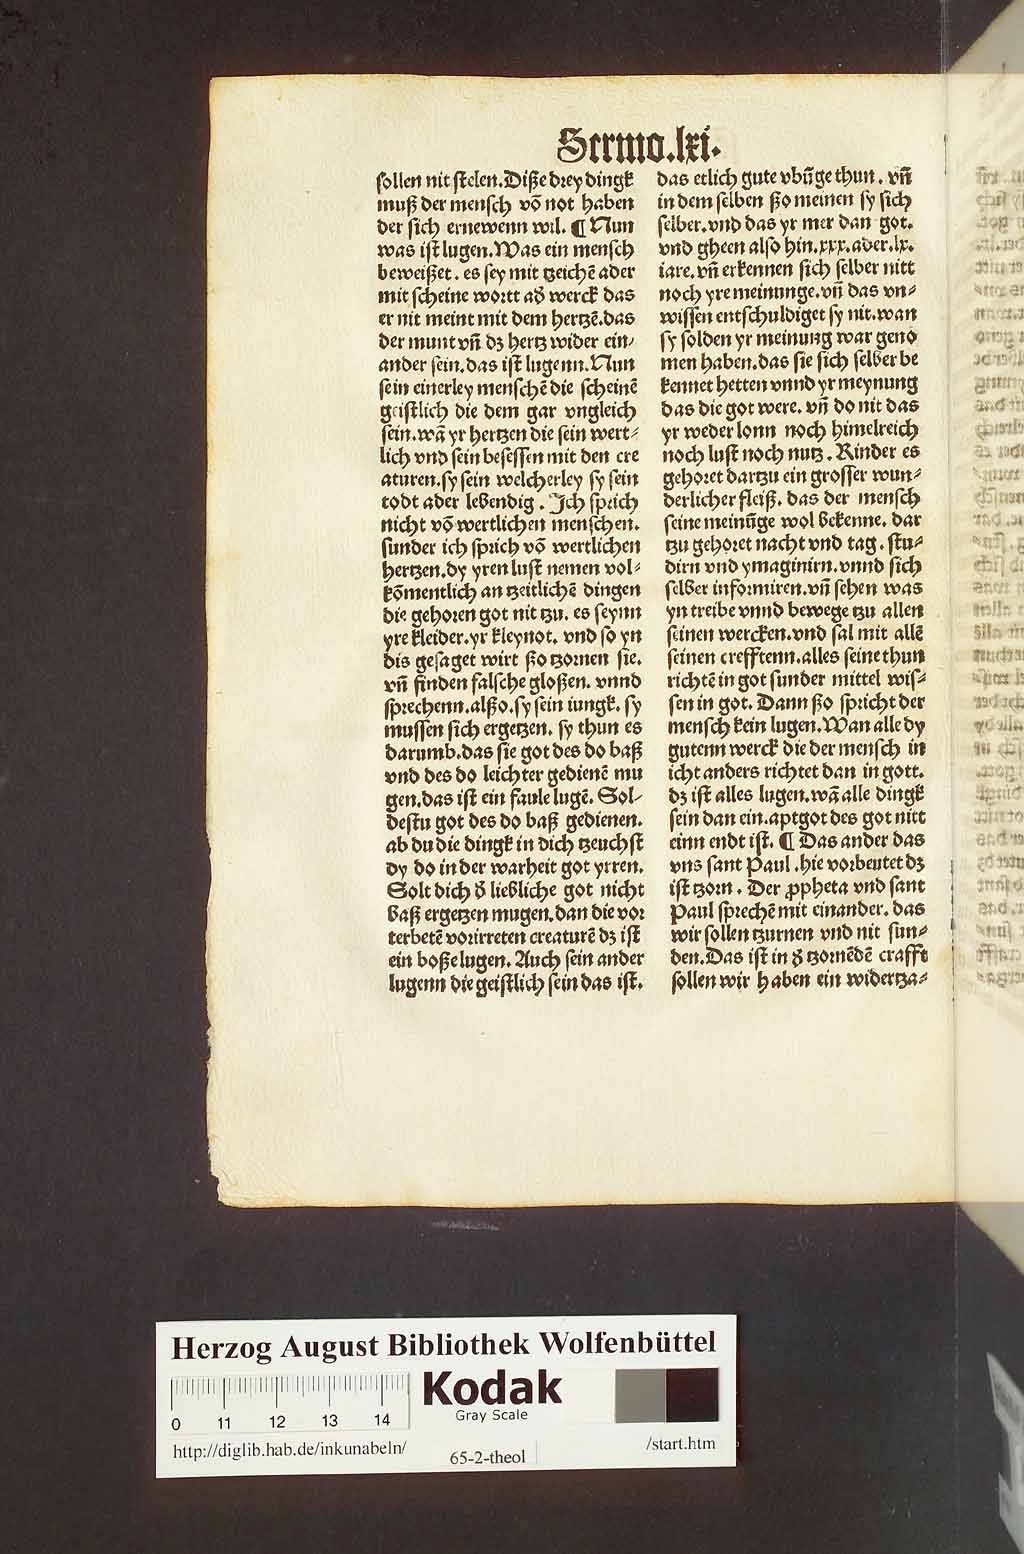 Sermo.lxi.
sollen nit stelen.Diße drey dingk
muß der mensch vō not haben
der sich ernewenn wil. ¶ Nun
was ist lugen.Was ein mensch
beweißet. es sey mit tzeichē ader
mit scheine wortt ad̛ werck das
er nit meint mit dem hertzē.das
der munt vn̄ dz hertz wider ein⸗
ander sein.das ist lugenn.Nun
sein einerley menschē die scheinē
geistlich die dem gar vngleich
sein.wā yr hertzen die sein wert⸗
lich vnd sein besessen mit den cre
aturen.sy sein welcherley sy sein
todt ader lebendig. Ich sprich
nicht vō wertlichen menschen.
sunder ich sprich vō wertlichen
hertzen.dy yren lust nemen vol⸗
kōmentlich an tzeitlichē dingen
die gehoren got nit tzu. es seynn
yre kleider.yr kleynot. vnd so yn
dis gesaget wirt ßo tzornen sie.
vn̄ finden falsche gloßen. vnnd
sprechenn.alßo.sy sein iungk. sy
mussen sich ergetzen. sy thun es
darumb.das sie got des do baß
vnd des do leichter gedienē mu
gen.das ist ein faule lugē. Sol⸗
destu got des do baß gedienen.
ab du die dingk in dich tzeuchst
dy do in der warheit got yrren.
Solt dich d̛ liebliche got nicht
baß ergetzen mugen.dan die vor
terbetē vorirreten creaturē dz ist
ein boße lugen. Auch sein ander
lugenn die geistlich sein das ist.
das etlich gute vbūge thun. vn̄
in dem selben ßo meinen sy sich
selber.vnd das yr mer dan got.
vnd gheen also hin.xxx.ader.lx.
iare. vn̄ erkennen sich selber nitt
noch yre meinunge.vn̄ das vn⸗
wissen entschuldiget sy nit.wan
sy solden yr meinung war geno
men haben.das sie sich selber be
kennet hetten vnnd yr meynung
das die got were. vn̄ do nit das
yr weder lonn noch himelreich
noch lust noch nutz. Rinder es
gehoret dartzu ein grosser wun⸗
derlicher fleiß. das der mensch
seine meinūge wol bekenne. dar
tzu gehoret nacht vnd tag. stu⸗
dirn vnd ymaginirn.vnnd sich
selber informiren.vn̄ sehen was
yn treibe vnnd bewege tzu allen
seinen wercken.vnd sal mit allē
seinen crefftenn.alles seine thun
richtē in got sunder mittel wis⸗
sen in got. Dann ßo spricht der
mensch kein lugen.Wan alle dy
gutenn werck die der mensch in
icht anders richtet dan in gott.
dz ist alles lugen.wā alle dingk
sein dan ein.aptgot des got nitt
einn endt ist. ¶ Das ander das
vns sant Paul.hie vorbeutet dz
ist tzorn. Der ꝓpheta vnd sant
Paul sprechē mit einander. das
wir sollen tzurnen vnd nit sun⸗
den.Das ist in d̛ tzornēdē crafft
sollen wir haben ein widertza⸗
Herzog August Bibliothek Wolfenbüttel
0 11 12 13 14
Kodak
Gray Scale
http://diglib.hab.de/inkunabeln/
65-2-theol
/start.htm